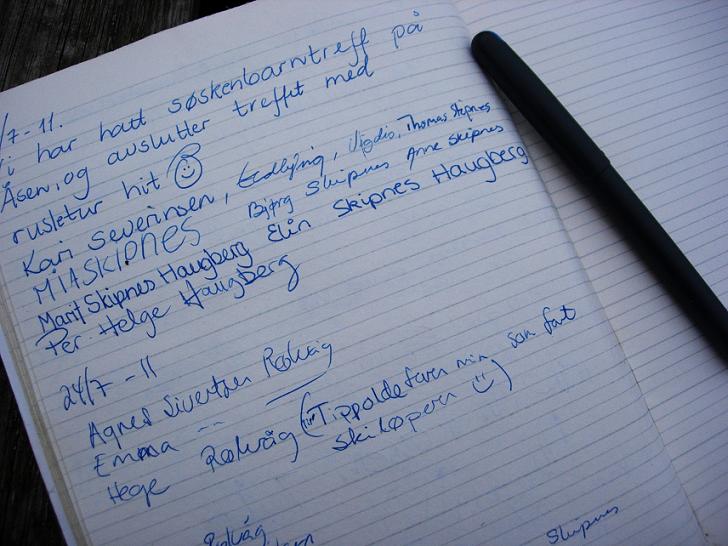 /7-11.
Vi har hatt søskenbarntreff på
Åsen, og avslutter treffet med
rusletur hit
Kari Severinsen, Vigdis, Thomas Skipnes
MIA SKIPNES Bjørg Skipnes Arne Skipnes
Marit Skipnes Haugberg Elin Skipnes Haugberg
Per Helge Haugberg
24/7-11
Agnes Sivertsen Rølvåg
Emma -- 
Hege Rølvåg (Tippoldefaren min, som fant
skiløperen :))
Rølvåg
Skipnes